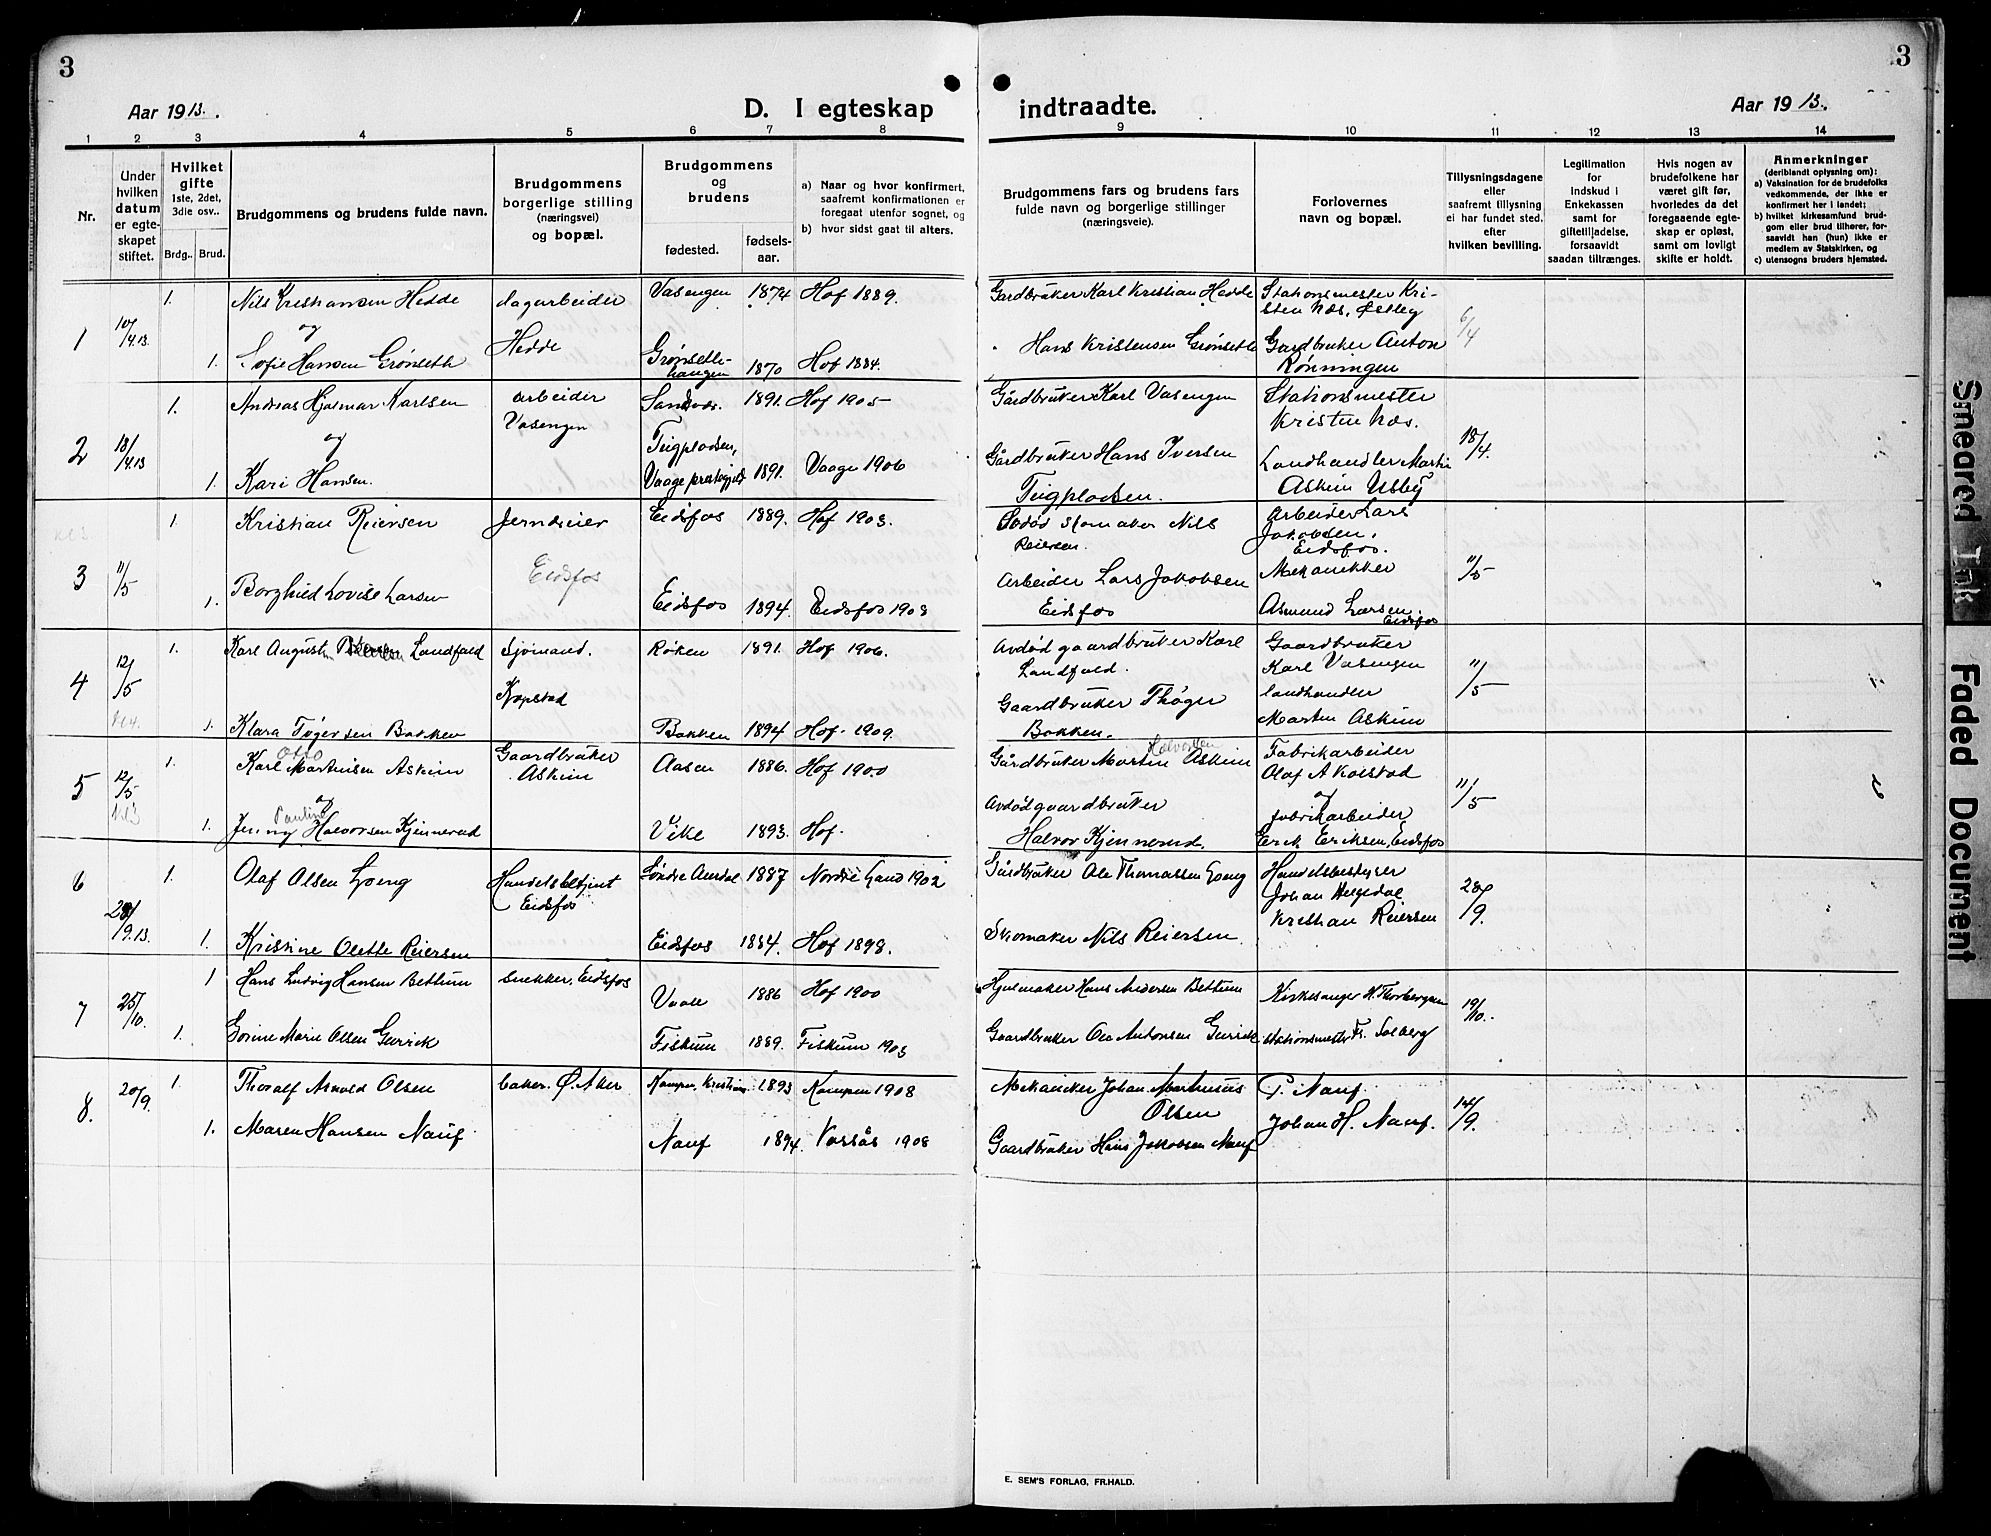 3
3
Aar 1913.
D. I egteskap
indtraadte.
Aar 1913.
1 2 3 4 5 6 7 8
9 10 11 12 13 14
Nr.
Under
hvilken
datum
er egte-
skapet
stiftet.
Hvilket
gifte
1ste, 2det,
3die osv..
Brdg..
Brud.
Brudgommens og brudens fulde navn.
Brudgommens
borgerlige stilling
(næringsvei)
og bopæl.
Brudgommens
og
brudens
fødested.
fødsels-
aar.
a) Naar og hvor konfirmert,
saafremt konfirmationen er
foregaat utenfor sognet, og
b) hvor sidst gaat til alters.
Brudgommens fars og brudens fars
fulde navn og borgerlige stillinger
(næringsveie).
Forlovernes
navn og bopæl.
Tillysningsdagene
eller
saafremt tillysning
ei har fundet sted.
efter
hvilken bevilling.
Legitimation
for
indskud i
Enkekassen
samt for
giftetilladelse,
forsaavidt
saadan tiltrænges.
Hvis nogen av
brudefolkene har
været gift før,
hvorledes da det
foregaaende egte-
skap er opløst,
samt om lovligt
skifte er holdt.
Anmerkninger
(deriblandt oplysning om):
a) Vaksination for de brudefolks
vedkommende, der ikke er
konfirmert her i landet;
b) hvilket kirkesamfund brud-
gom eller brud tilhører, for-
saavidt han (hun) ikke er
medlem av Statskirken, og
c) utensogns bruders hjemsted.
1. Nils Kristiansen Hedde dagarbeider Vasengen 1874 Hof 1889. Gardbruker Karl Kristian Hedde Stationsmester Kri-
sten Næs, Østby
1 10/4.13. og Hedde 6/4
1. Sofie Hansen Grønseth Grønseth-
hangen 1870 Hof 1884. Hans Kristensen Grønseth Gardbruker Anton
Rønningen
1. Andreas Hjalmar Karlsen arbeider
Vasengen Sandvær. 1891. Hof 1905 Gårdbruker Karl Vasengen Stationsmester
Kristen Næs.
2 18/4.13 og 18/4.
1. Kari Hansen. Teigplodsen,
Vaage prestegjeld 1891. Vaage 1906 Gårdbruker Hans Iversen
Teigplodsen. Landhandler Martin
Askim
1. Kristian Reiersen Jerndreier Eidsfos 1889. Hof 1903. Avdød skomaker Nils
Reiersen. Arbeider Lars
Jakobsen,
Eidsfos.
3 11/5 Eidsfos 11/5
1. Borghild Lovise Larsen Eidsfos 1894. Eidsfos 1908 Arbeider Lars Jakobsen
Eidsfos Mekanikker
Asmund Larsen.
Eidsfos
1. Karl August Landfald Sjømand. Røken 1891. Hof 1906. Avdød gaardbruker Karl
Landfald. Gaardbruker
Karl Vasengen
4 12/5 Kopstad 11/5
1. Klara Tøgersen Bakken Bakken 1894 Hof. 1909. Gaardbruker Thøger
Bakken. landhandler
Martin Askim
1. Karl Otto Martinsen Askim Gaardbruker
Askim Aasen 1886. Hof 1900 Gårdbruker Martin Halvorsen Askim Fabrikarbeider
Olaf A Kolstad
5 12/5 kl 3 og 11/5
1. Jenny Pauline Halvorsen Kjennerud Vike 1893. Hof. Avdød gaardbruker
Halvor Kjennerud. og
fabrikarbeider
Erik Eriksen, Eidsfos
6 1. Olaf Olsen Goeng Handelsbetjent
Eidsfos Søndre Aurdal 1887 Nordre Land 1902 Gårdbruker Ole Thomassen Goeng Handelsbestyrer
Johan Helgedal
28/9.13. 28/9.
1. Kristine Olette Reiersen Eidsfos 1884 Hof 1898. Skomaker Nils Reiersen. Kristian Reiersen
1 Hans Ludvig Hansen Bettum snekker, Eidsfos Vaale 1886 Hof 1900 Hjulmaker Hans Andersen Bettum Kirkesanger H. Thorbergsen
7 25/10. 19/10.
1. Sorine Marie Olsen Gurrik Fiskum 1889. Fiskum 1903 Gaardbruker Ole Antonsen Gurrik stationsmester Fr. Solberg
1. Thoralf Arnold Olsen baker. Ø. Aker Kampen, Kristiania 1893 Kampen 1908 Mekaniker Johan Martinius
Olsen P. Nauf
8. 20/9. 14/9.
1. Maren Hansen Nauf Nauf 1894. Vassås 1908 Gaardbruker Hans Jakobsen Nauf Johan H. Nauf.
E. SEM'S FORLAG, FR.HALD.
Smeared Ink
Faded Document